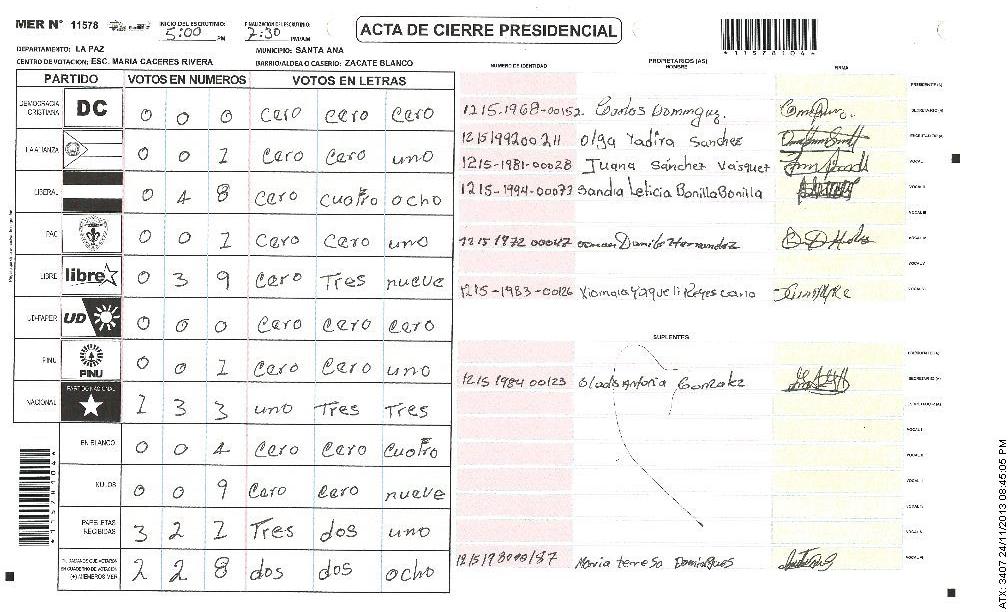 MER N° 11578 INICIO DEL ESCRUTINIO: 5:00 PM FINALIZACION DEL ESCRUTINIO: 2:30 PM/AM
ACTA DE CIERRE PRESIDENCIAL
115781046
DEPARTAMENTO: LA PAZ MUNICIPIO: SANTA ANA
CENTRO DE VOTACION: ESC. MARIA CACERES RIVERA BARRIO/ALDEA O CASERIO: ZACATE BLANCO
PARTIDO VOTOS EN NUMEROS VOTOS EN LETRAS
DEMOCRACIA CRISTIANA DC 0 0 0 Cero Cero Cero
LA ALIANZA 0 0 1 Cero Cero uno
LIBERAL 0 4 8 Cero cuatro ocho
PAC 0 0 1 Cero Cero uno
LIBRE libre 0 3 9 Cero Tres nueve
UD-FAPER UD 0 0 0 Cero Cero Cero
PINU PINU 0 0 1 Cero Cero uno
NACIONAL PARTIDO NACIONAL 1 3 3 uno Tres Tres
EN BLANCO 0 0 4 Cero Cero Cuatro
NULOS 0 0 9 Cero Cero nueve
PAPELETAS RECIBIDAS 3 2 1 Tres dos uno
2 2 8 dos dos ocho
NUMERO DE IDENTIDAD PROPIETARIOS (AS) NOMBRE FIRMA
PRESIDENTE (A)
1215-1968-00152 Carlos Dominguz. SECRETARIO (A)
1215199200211 Olga Yadira Sanchez ESCRUTADOR (A)
1215-1981-00028 Juana Sánchez Vasquez VOCAL I
1215-1994-00073 Sandra Leticia Bonilla Bonilla VOCAL II
VOCAL III
1215 1972 00047 Danilo Hernandez VOCAL IV
VOCAL V
1215-1983-00126 Xiomara Yaqueli Reyes
SUPLENTES
1215 1984 00123 Gladis Antonia Gonzalez SECRETARIO (A)
Maria teresa Domingues
115781046
ATX: 3407 24/11/2013 08:45:05 PM